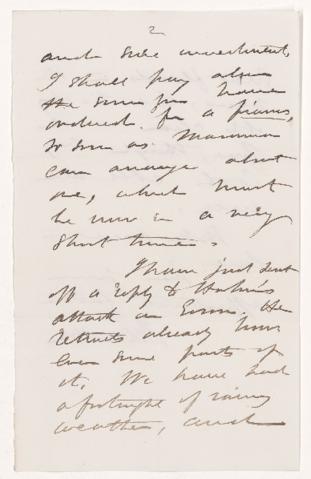 2
and safe investment,
I shall pay also
the sum you have
ordered for a piano,
so soon as Mamma
can arrange about
one, which must
be now in a very
short time.
I have just sent
off a reply to
attack on the
already
even some parts of
it. We have had
a fortnight of rainy
weather, and